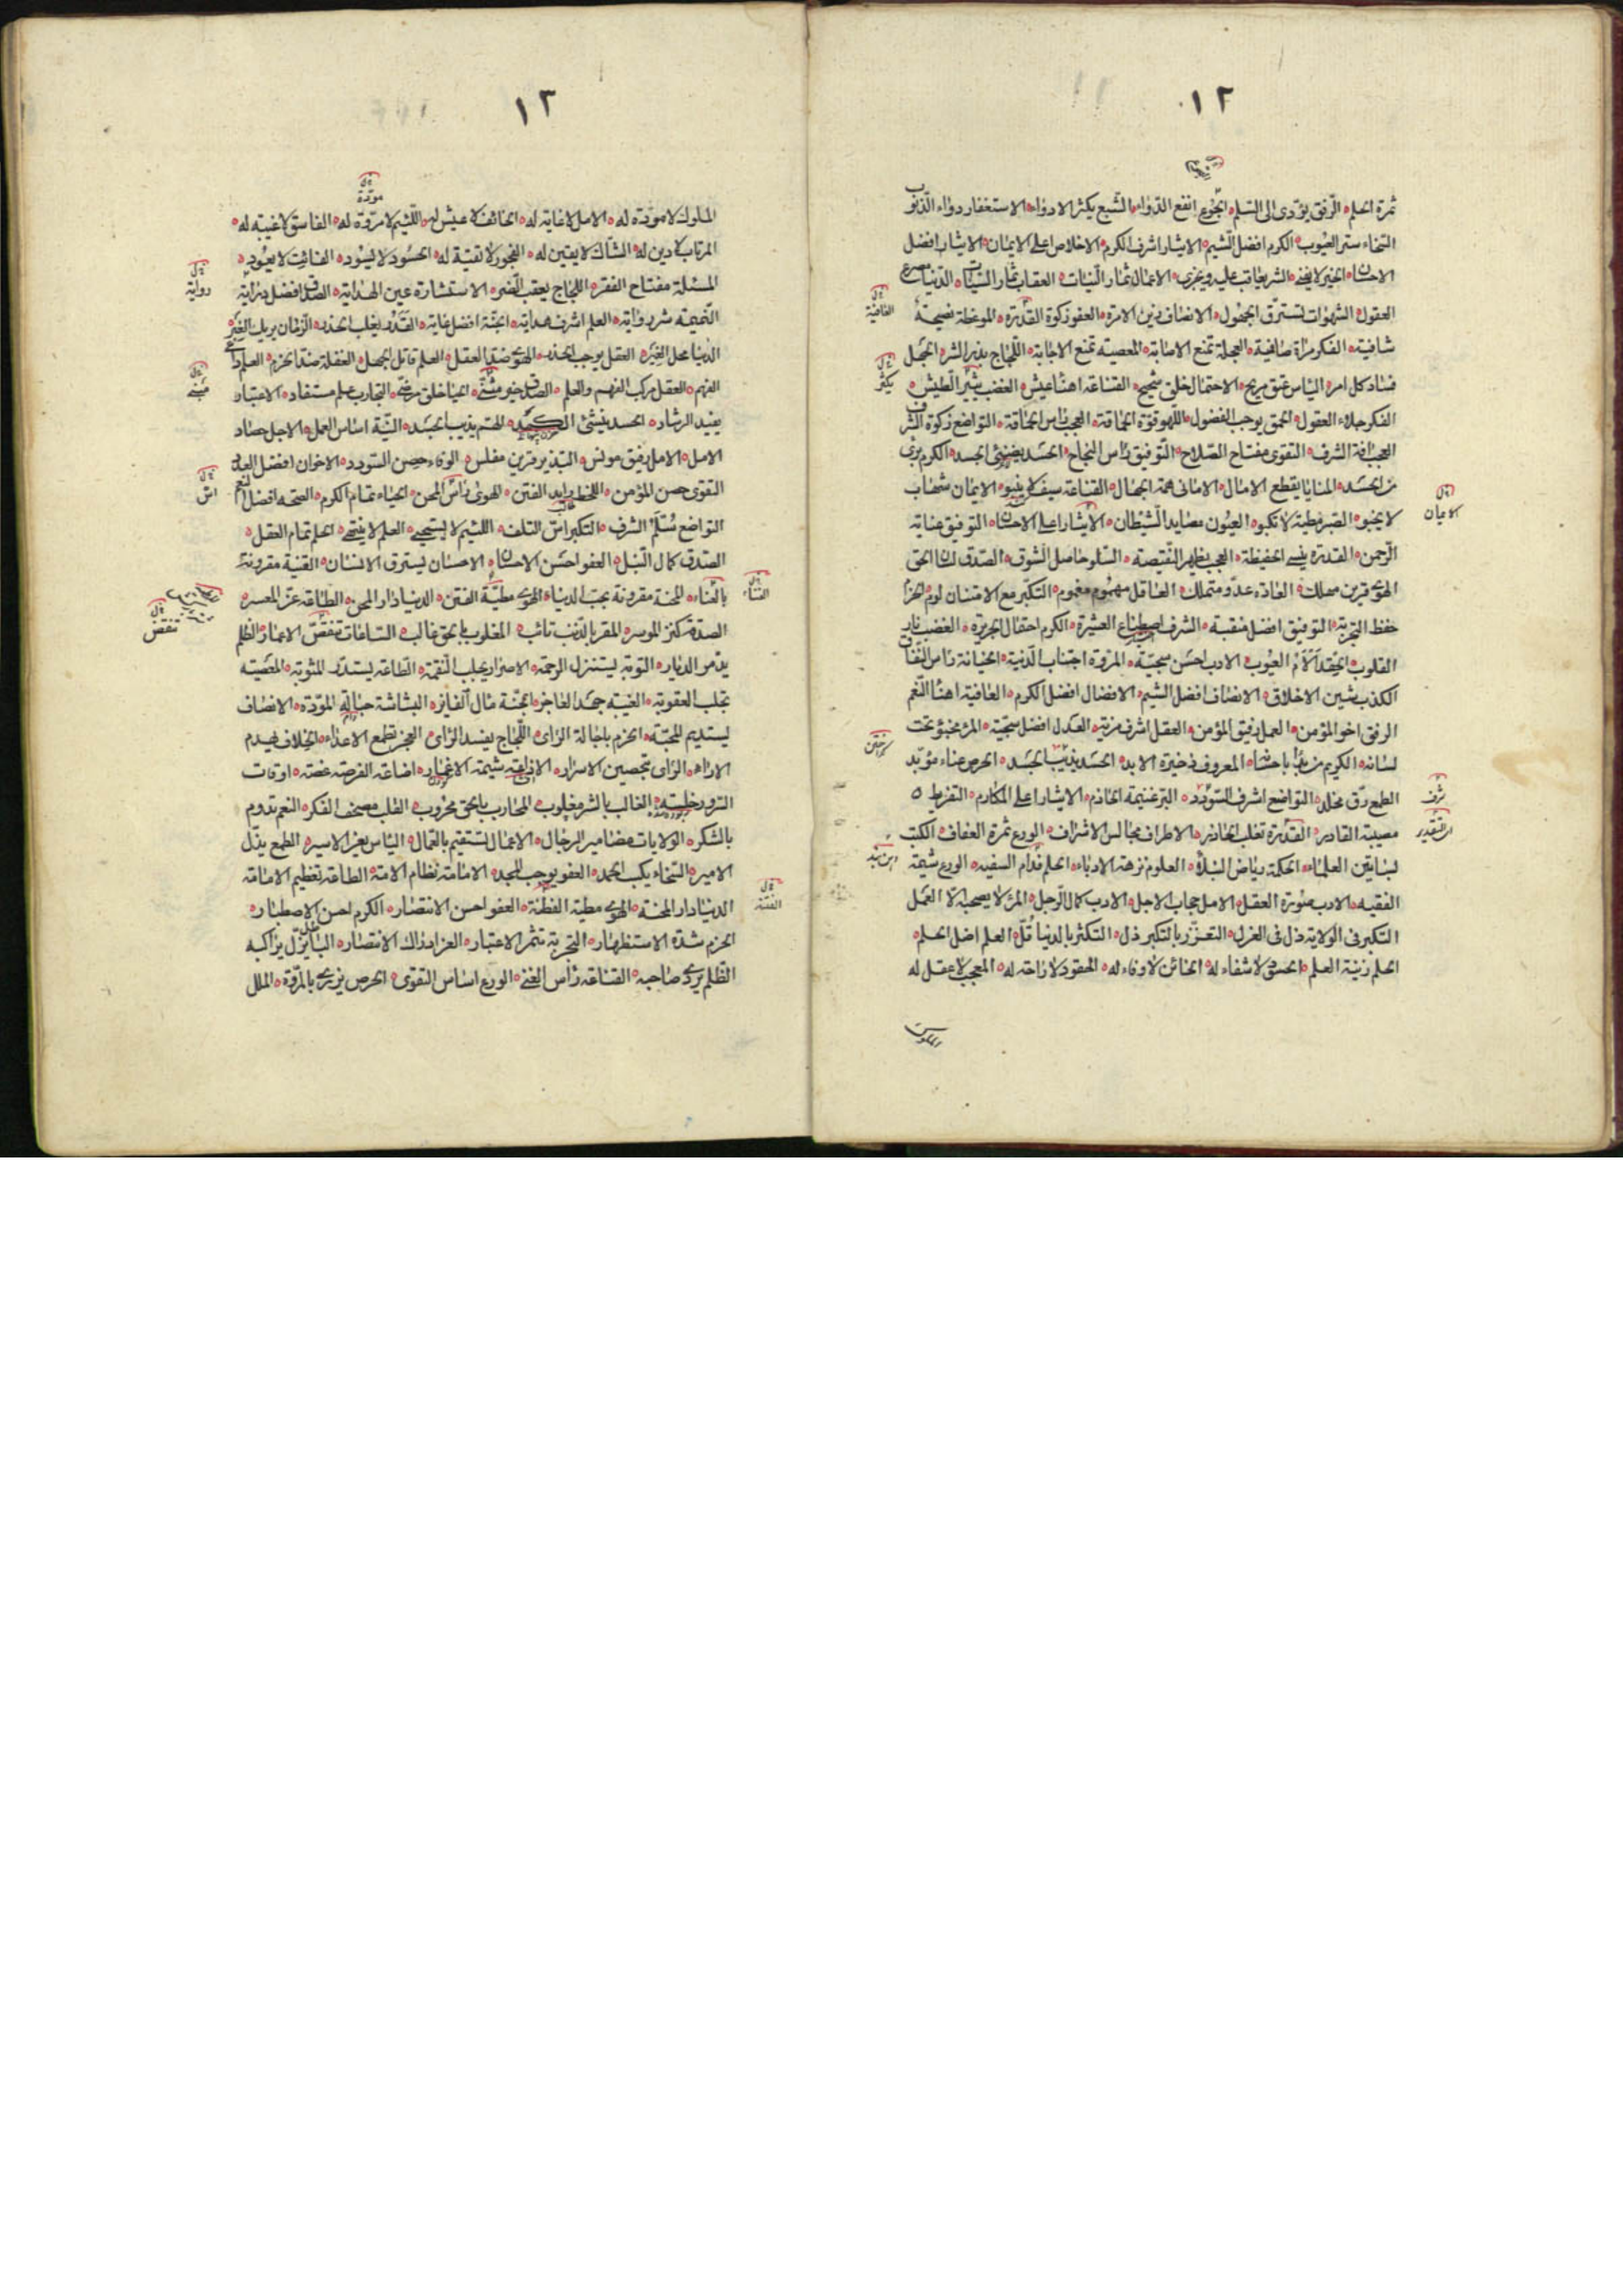 ١٢
ثمرة الحلم الرفق يؤدى الى السلم الجوع انفع الدواء الشبع يكثر الادواء الاستغفار دواء الذنوب
السخاء ستر العيوب الكرم افضل الشيم الايثار اشرف الكرم الاخلاص اعلى الايمان الايثار افضل
الاحسان الخير لا يفنى الشر يعاقب عليه ويجزى الاعمال ثمار النيات العقاب ثمار السيئات الدنيا مصرع
العقول الشهوات تسترق الجهول الانصاف زين الامرة العفو زكوة القدرة الموعظة نصيحة
شافية الفكر مراة صافية العجلة تمنع الاصابة المعصية تمنع الاجابة اللجاج بذر الشر الجهل
فساد كل امر الياس عتق مريح الاحتمال خلق سجيح القناعة اهنأ عيش الغضب يثير الطيش
الفكر جلاء العقول الحمق يوجب الفضول اللهو قوة الحماقة العجب راس الحماقة التواضع زكوة الشرف
العجب افة الشرف التقوى مفتاح الصلاح التوفيق راس النجاح الحسد يضنى الجسد الكرم برئ
من الحسد المنايا يقطع الامال الامانى همة الجهال القناعة سيف لا ينبو الايمان شهاب
لا يخبو الصبر مطية لا تكبو العيون مصايد الشيطان الايثار اعلى الاحسان التوفيق عناية
الرحمن القدرة ينسى الحفيظة العجب يظهر النقيصة السلو حاصل الشوق الصدق لسان الحق
الهوى قرين مهلك العادة عدو متملك العاقل مهموم مغموم التكبر مع الامتنان لوم الحزم
حفظ التجربة التوفيق افضل منقبة الشرف اصطناع العشيرة الكرم احتمال الجريرة الغضب نار
القلوب الحقد ألأم العيوب الادب احسن سجية المروة اجتناب الدنية الخيانة راس النفاق
الكذب شين الاخلاق الانصاف افضل الشيم الافضال افضل الكرم العافية اهنأ النعم
الرفق اخو المؤمن العمل رفيق المؤمن العقل اشرف مزية العدل افضل سجية المرء مخبو تحت
لسانه الكريم من بدا باحسانه المعروف ذخيرة الابد الحسد يذيب الجسد الحرص عناء مؤبد
الطمع رق مخلد التواضع اشرف السودد البر غنيمة الحازم الايثار اعلى المكارم التفريط
مصيبة القادر القدرة تغلب الحاذر الاطراف مجالس الاشراف الورع ثمرة العفاف الكتب
بساتين العلماء الحكمة رياض النبلاء العلوم نزهة الادباء الحلم فدام السفيه الورع شيمة
الفقيه الادب صورة العقل الامل حجاب الاجل الادب كمال الرجل المرء لا يصحبه الا العمل
التكبر فى الولاية ذل فى العزل التعزز بالتكبر ذل التكثر بالدنيا قل العلم اصل الحلم
الحلم زينة العلم الحسود لا شفاء له الخائن لا وفاء له الحقود لا راحة له المعجب لا عقل له
العافية
يكثر
الايمان
شرف
١٢
مودة
الملوك لا مودة له الامل لا غاية له الخائف لا عيش له اللئيم لا مروة له الفاسق لا غيبة له
المرتاب لا دين له الشاك لا يقين له الفجور لا تقية له الحسود لا يسود الفائت لا يعود
المسئلة مفتاح الفقر اللجاج يعقب الضر الاستشارة عين الهداية الصدق افضل دراية
النميمة شر رواية العلم اشرف هداية الجنة افضل غاية القدر يغلب الحذر الزمان يريك العبر
الدنيا محل الغير العقل يوجب الحذر الهوى ضد العقل العلم قاتل الجهل الغفلة ضد الحزم العلم داعى
الفهم العقل مركب الفهم والعلم الصدق خير مبنى الحيا خلق مرضى التجارب علم مستفاد الاعتبار
يفيد الرشاد الحسد ينشئ الكمد الهم يذيب الجسد النية اساس العمل الاجل حصاد
الامل الامل رفيق مونس التبذير قرين مفلس الوفاء حصن السودد الاخوان افضل العدد
التقوى حسن المؤمن اللحظ رايد الفتن الهوى راس المحن الحياء تمام الكرم الصحة افضل النعم
التواضع سلم الشرف التكبر اس التلف اللئيم لا يستحيى العلم لا ينتهى الحلم تمام العقل
الصدق كمال النبل العفو احسن الاحسان الاحسان يسترق الانسان القنية مقرونة
بالعناء المحنة مقرونة بحب الدنيا الهوى مطية الفتن الدنيا دار المحن الطاقة عز المعسر
الصدقة كنز الموسر المقر بالذنب تائب المغلوب بالحق غالب الساعات تنقص الاعمار الظلم
يدمر الديار التوبة يستنزل الرحمة الاصرار يجلب النقمة الطاعة يستدر المثوبة المعصية
تجلب العقوبة الغيبة جهد العاجز الجنة مال الفايز البشاشة حبالة المودة الانصاف
يستديم المحبة الحزم باجالة الراى اللجاج يفسد الراى العجز يطمع الاعداء الخلاف يهدم
الاراء الراى بتحصين الاسرار الاذاعة شيمة الاغيار اضاعة الفرصة غصة اوقات
السرور خلسة الغالب بالشر مغلوب المحارب بالحق محروب القلب مصحف الفكر النعم تدوم
بالشكر الولايات مضامير الرجال الاعمال تستقيم بالعمال الياس يعز الاسير الطمع يذل
الامير السخاء يكسب الحمد العفو يوجب المجد الامامة نظام الامة الطاعة تعظيم الامامة
الدنيا دار المحنة الهوى مطية الفتنة العفو احسن الانتصار الكرم احسن الاصطبار
الحزم شدة الاستظهار التجربة تثمر الاعتبار العز ادراك الانتصار البغى يزل براكبه
الظلم يردى صاحبه القناعة راس الغنى الورع اساس التقوى الحرص يزرى بالمروة الملل
رواية
اس
تنقص
الفتنة